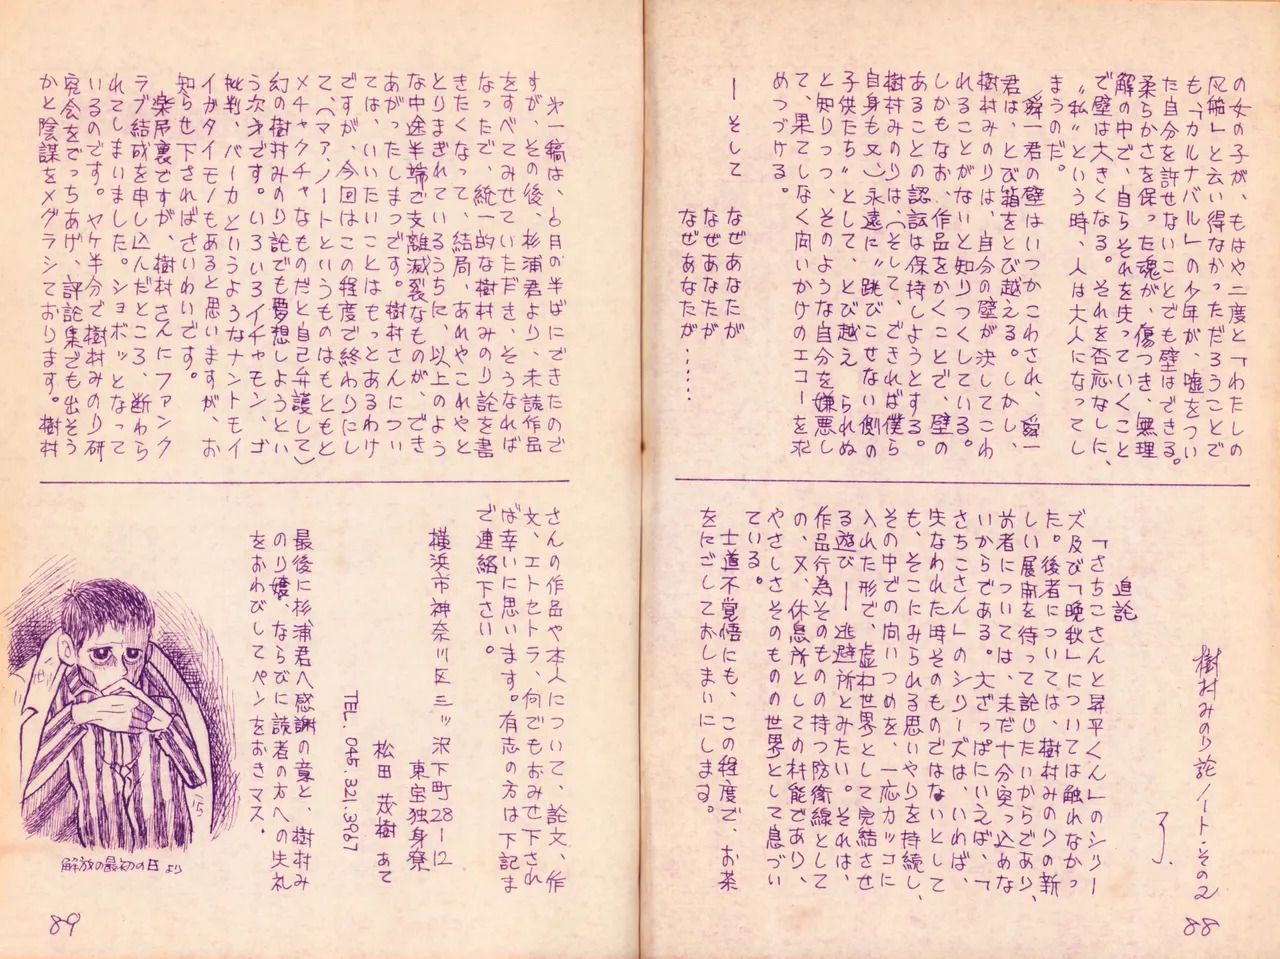 の女の子が、もはや二度と「わたしの
宛船」と云い得なかっただろうことで
も、「カルナバル」の少年が、嘘をつい
た自分を許せないことでも壁はできる。
柔らかさを保った魂が、傷つき、無理
解の中で、自らそれを失っていくこと
で壁は大きくなる。それを否応なしに、
“私”という時、人は大人になってし
まうのだ。
舜一君の壁はいつかこわされ、舜一
君は、とび箱をとび越える。しかし、
樹村みのりは、自分の壁が決してこわ
れることがないと知りつくしている。
しかもなお、作品をかくことで、壁の
あることの認識は保持しようとする。
樹村みのりは、(そして、できれば僕ら
自身も又)永遠に〝跳びこせない側の
子供たち〟として、とび越えられぬ
と知りつつ、そのような自分を嫌悪し
て、果てしなく向いかけのエコーを求
めつづける。
ー そして
なぜあなたが
なぜあなたが
なぜあなたが……
追記
「さちこさんと昇平くん」のシリー
ズ及び「晩秋」については触れなかっ
た。後者については、樹村みのりの新
しい展開を待って論じたいからであり、
前者については、未だ十分突っ込めな
いからである。大ざっぱにいえば、「
さちこさん」のシリーズは、いわば、
失なわれた時そのものではないとして
も、そこにみられる思いやりを持続し、
その中での向いつめを、一応カッコに
入れた形で、虚わ世界として完結させ
る遊び ー 逃避所とみたい。それは、
作品行為そのものの持つ防衛線として
の、又、休息所としての材能であり、
やさしさそのものの世界として息づい
ている。
士道不覚悟にも、この程度で、お茶
をにごしておしまいにします。
樹村みのり論ノート・その2
了.
88
㐧一稿は、6月の半ばにできたので
すが、その後、杉浦君より、未読作品
をすべてみせていただき、そうなれば
なったで、統一的な樹村みのり論を書
きたくなって、結局、あれやこれやと
とりまぎれているうちに、以上のよう
な中途半端で支離滅裂なものが、でき
あがったしまつです。樹村さんについ
ては、いいたいことはもっとあるわけ
ですが、今回はこの程度で終わりにし
て、(マア、ノートというものはもともと
メチャクチャなものだと自己弁護して)
幻の樹村みのり論でも夢想しようとい
う次才です。いろいろイチャモン、ゴ
批判、バーカというようなナントモイ
イガタイモノもあると思いますが、お
知らせ下さればさいわいです。
楽吊裏ですが、樹村さんにファンク
ラブ結成を申し込んだところ、断わら
れてしまいました。ショボッとなって
いるのです。ヤケ半分で樹村みのり研
究会をでっちあげ、評論集でも出そう
かと陰謀をメグラシております。樹村
さんの作品や本人について、論文、作
文、エトセトラ、何でもおみせ下され
ば幸いに思います。有志の方は下記ま
で連絡下さい。
横浜市神奈川区三ッ沢下町28-12
東宝独身寮
松田 茂樹 あて
TEL. 045.321.3967
最後に杉浦君へ感謝の意と、樹村み
のり嬢、ならびに読者の方への失礼
をおわびしてペンをおきマス.
解放の最初の日より
89